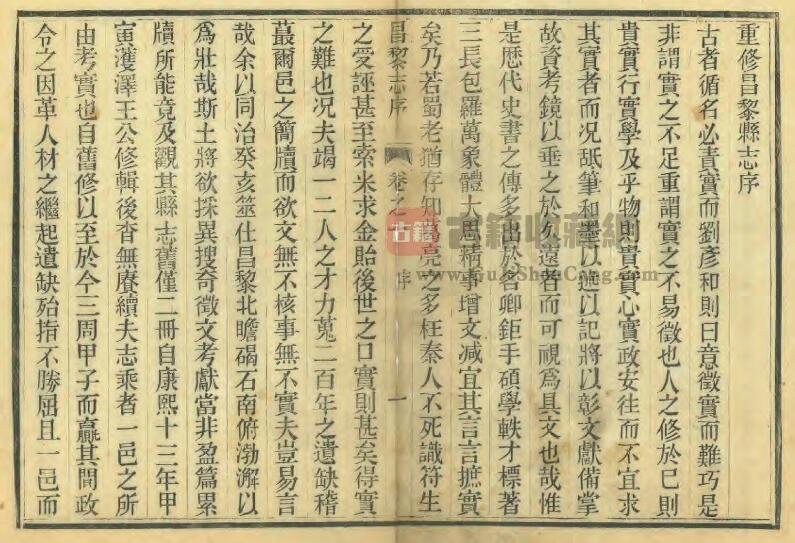 重修昌黎縣志序
古者循名必責實而劉彥和則曰意徵實而難巧是
非謂實之不足重謂實之不易徵也人之修於已則
貴實行實學及乎物則貴實心實政安往而不宜求
其實者而况舐筆和墨以迄以記將以彰文獻備掌
故資考鏡以垂之於久遠者而可視爲具文也哉惟
是歷代史書之傳多出於各卿鉅手碩學軼才標著
三長包羅萬象體大思精事增文減宜其言言摭實
矣乃若蜀老猶存知葛亮之多枉秦人不死識符生
昌黎志序 卷之 序 一
之受誣甚至索米求金貽後世之口實則甚矣得實
之難也况夫竭一二人之才力蒐二百年之遺缺稽
蕞爾邑之簡牘而欲文無不核事無不實夫豈易言
哉余以同治癸亥筮仕昌黎北瞻碣石南俯渤澥以
爲壯哉斯土將欲採異搜奇徵文考獻當非盈篇累
牘所能竟及觀其縣志舊僅二冊自康熙十三年甲
寅濩澤王公修輯後杳無賡續夫志乘者一邑之所
由考實也自舊修以至於今三周甲子而贏其間政
令之因革人材之繼起遺缺殆指不勝屈且一邑而
古籍
古籍收藏網
www.GuJiShuCang.com